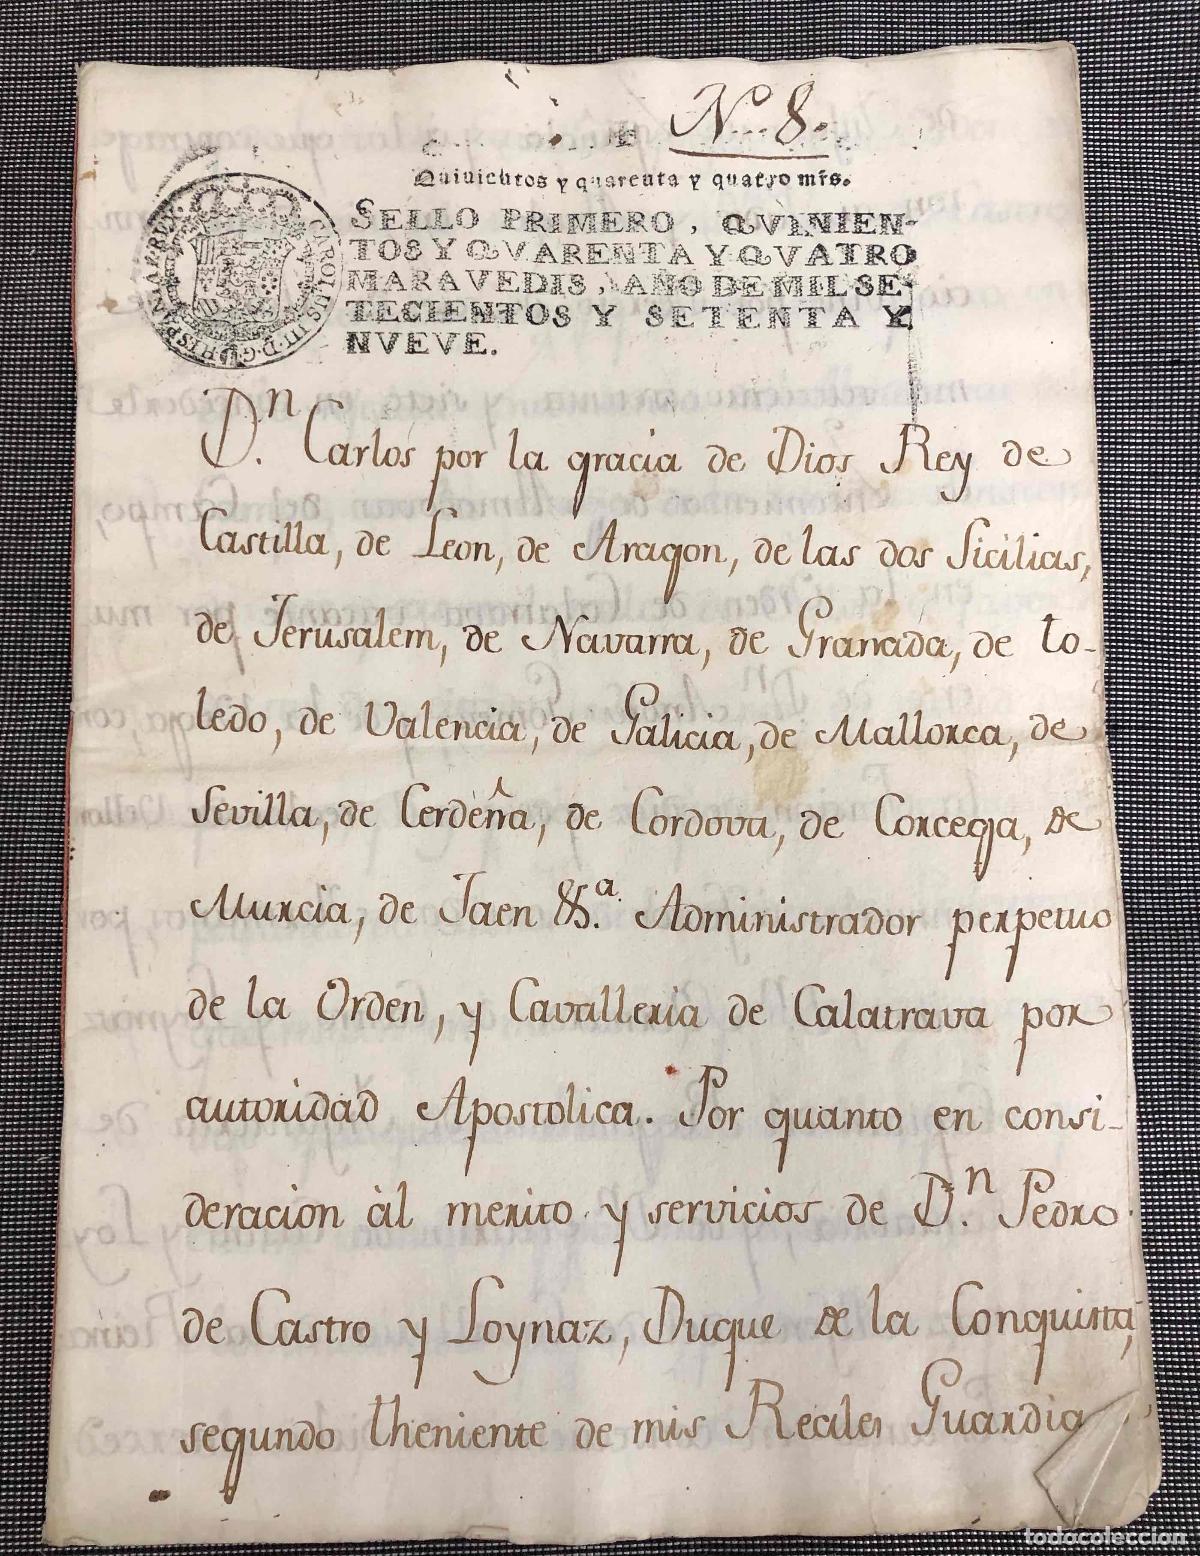 N.. 8.
Quinientos y quarenta y quatro mrs.
SELLO PRIMERO, QVINIEN-
TOS Y QVARENTA Y QVATRO
MARAVEDIS, AÑO DE MIL SE-
TECIENTOS Y SETENTA Y
NVEVE.
CAROLUS III D G HISPANIAR REX
Dn. Carlos por la gracia de Dios Rey de
Castilla, de Leon, de Aragon, de las dos Sicilias,
de Jerusalem, de Navarra, de Granada, de to-
ledo, de Valencia, de Galicia, de Mallorca, de
Sevilla, de Cerdeña, de Cordova, de Corcega, de
Murcia, de Jaen &ª. Administrador perpetuo
de la Orden, y Cavalleria de Calatrava por
autoridad Apostolica. Por quanto en consi-
deracion àl merito y servicios de Dn. Pedro
de Castro y Loynaz, Duque de la Conquista,
segundo theniente de mis Reales Guardia
todocoleccion